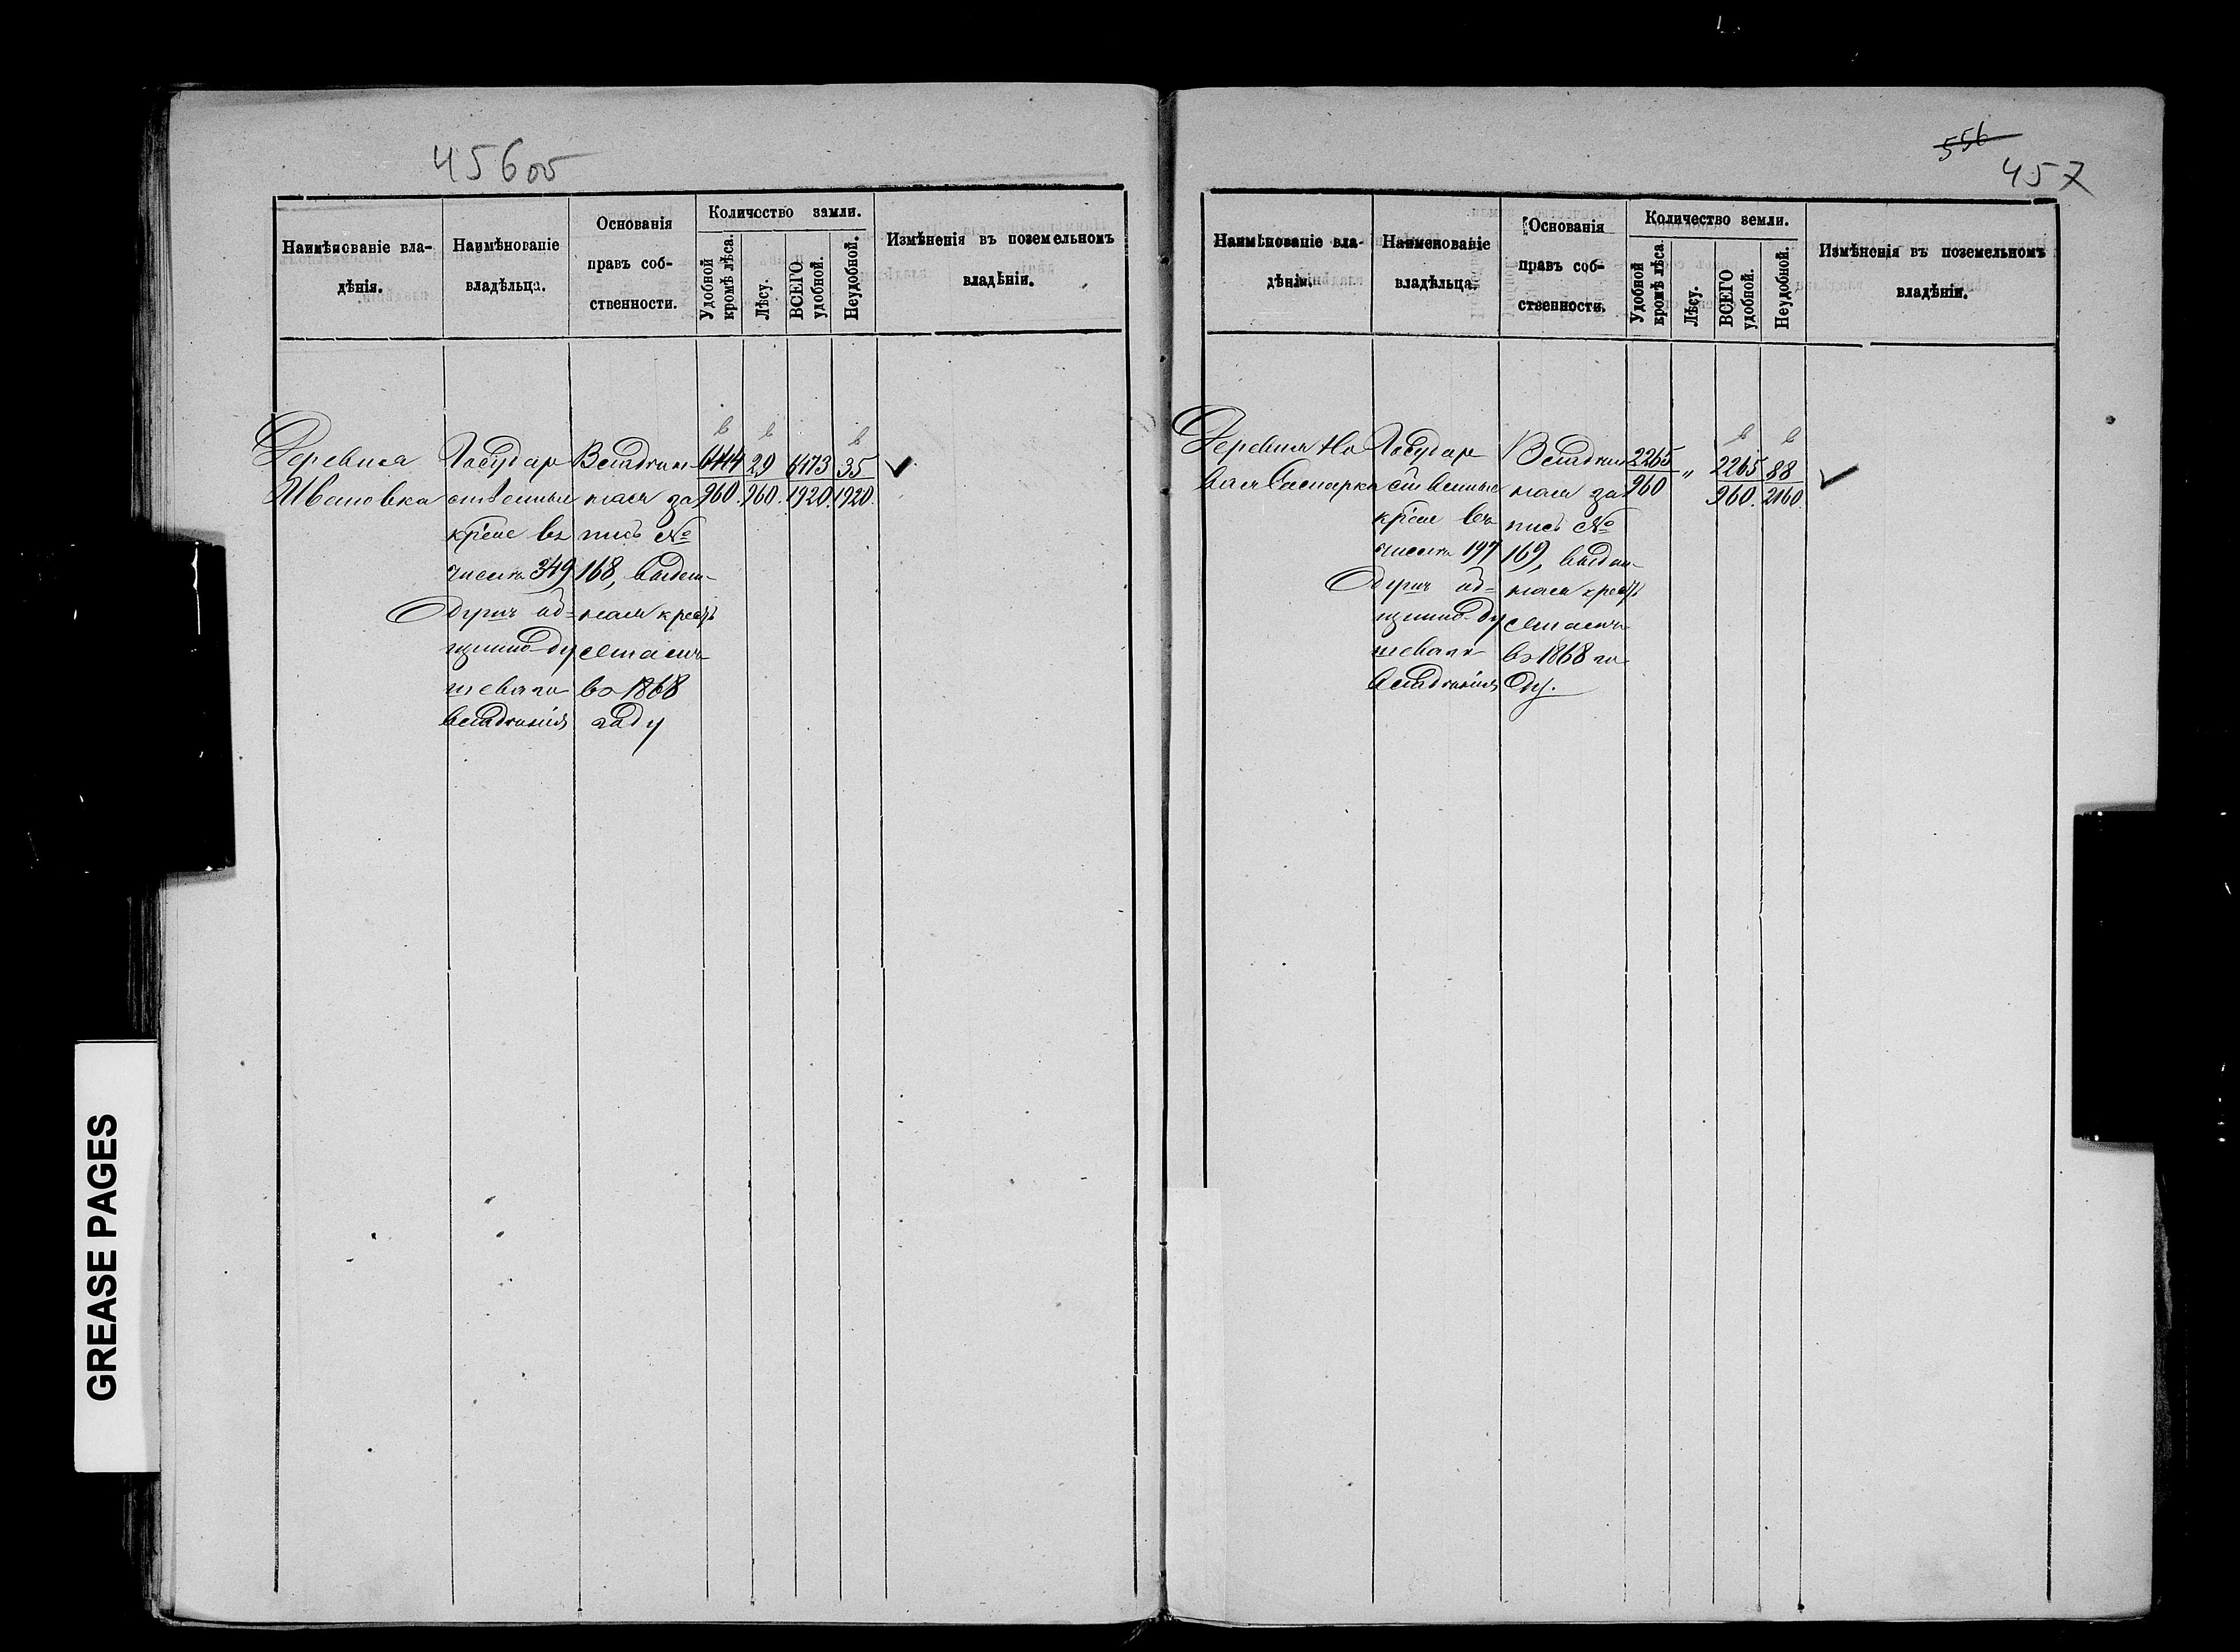 456 об
Наимѣнованіе вла-
дѣнія.
Наимѣнованіе
владѣльца.
Основанія
правъ соб-
ственности.
Количество земли.
Удобной
кромѣ лѣса.
Лѣсу.
ВСЕГО
удобной.
Неудобной.
Измѣненія въ поземельномъ
владѣніи.
Деревня
Ивановка
Государ
ственные
крѣне въ
числѣ 349
душъ об-
щинно-ду
шеваго
владѣнія
Владѣн
ная за
пись №
168, выдан-
ная кресть
янамъ
въ 1868
году
29
960.
6173
1920.
35
1920.
556
457
Наимѣнованіе вла-
дѣнія.
Наименованіе
владѣльца.
Основанія
правъ соб-
ственности.
Количество земли.
Удобной
кромѣ лѣса.
Лѣсу.
ВСЕГО
удобной.
Неудобной.
Измѣненія въ поземельномъ
владѣніи.
Деревня Но
вая
Государ
ственные
крѣне въ
числѣ 197
душъ об-
щинно-ду
шеваго
владѣнія
Владѣн
ная за
пись №
169, выдан
ная кресть
янамъ
въ 1868 го
ду.
2265
960
"
2265
960.
88
2160.
GREASE PAGES